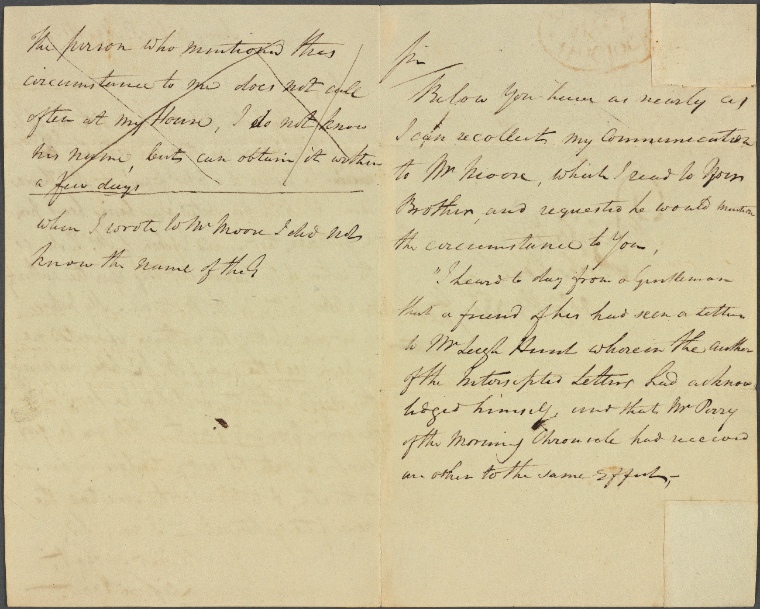 The person who mentioned this
circumstance to me does not call
often at my House, I do not know
his name, but can obtain it within
a few days
when I wrote to Mr Moore I did not
know the name of the G
Sir
Below You have as nearly as
I can recollect my communication
to Mr Moore, which I read to Your
Brother, and requested he would mention
the circumstance to You,
"I heard to day from a Gentleman
that a friend of his had seen a Letter
to Mr Leigh Hunt wherein the Author
of the Intersepted Letters had acknow
ledged himself, and that Mr Perry
of the Morning Chronicle had received
an other to the same Effect,-